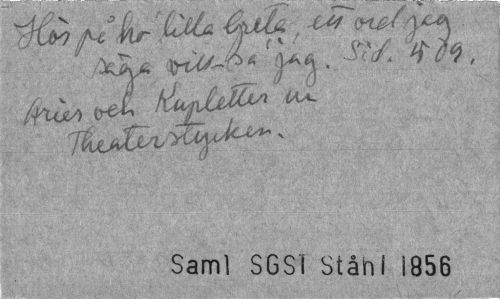 Hör på ho' lilla Greta, ett ord jag
säga vill-så jag. Sid. 5 09.
Arier och Kupletter ur
Theaterstycken.
Saml SGSI Ståhl 1856